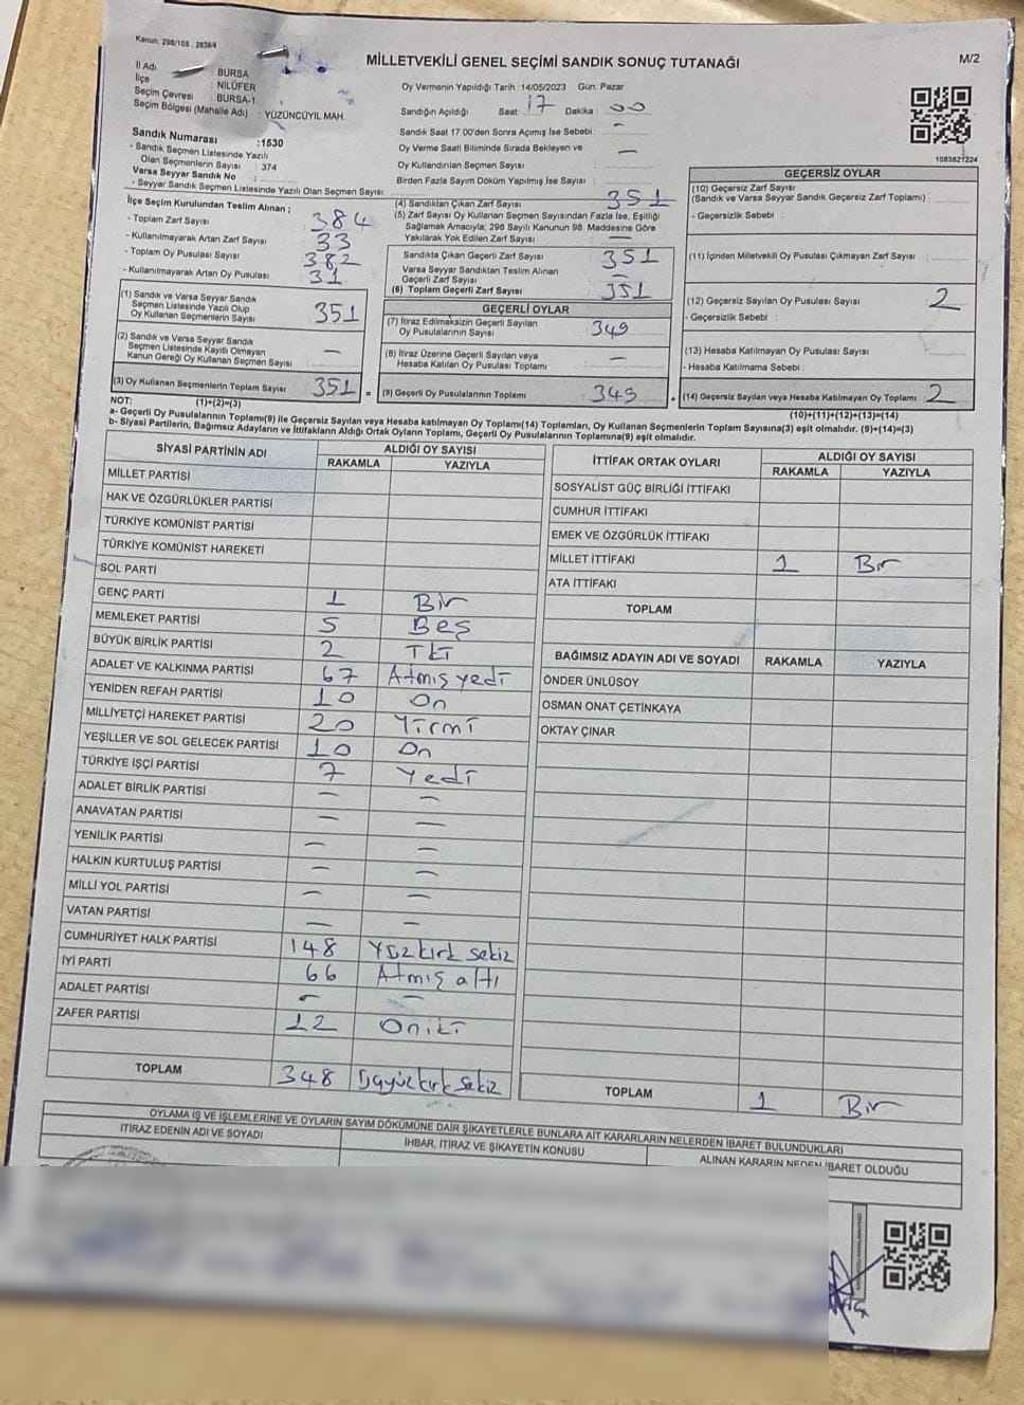 Kanun: 298/105 , 28364
M/2
MİLLETVEKİLİ GENEL SEÇİMİ SANDIK SONUÇ TUTANAĞI
İl Adı : BURSA
İlçe : NİLÜFER
Seçim Çevresi : BURSA-1
Seçim Bölgesi (Mahalle Adı) : YÜZÜNCÜYIL MAH.
Sandık Numarası :1530
- Sandık Seçmen Listesinde Yazılı
Olan Seçmenlerin Sayısı : 374
Varsa Seyyar Sandık No :
- Seyyar Sandık Seçmen Listesinde Yazılı Olan Seçmen Sayısı:
Oy Vermenin Yapıldığı Tarih :14/05/2023 Gün: Pazar
Sandığın Açıldığı Saat : 17 Dakika : 00
Sandık Saat 17.00'den Sonra Açılmış İse Sebebi : –
Oy Verme Saati Bitiminde Sırada Bekleyen ve
Oy Kullandırılan Seçmen Sayısı : –
Birden Fazla Sayım Döküm Yapılmış İse Sayısı :
1083621224
İlçe Seçim Kurulundan Teslim Alınan ;
- Toplam Zarf Sayısı : 384
- Kullanılmayarak Artan Zarf Sayısı : 33
- Toplam Oy Pusulası Sayısı : 382
- Kullanılmayarak Artan Oy Pusulası : 31
(1) Sandık ve Varsa Seyyar Sandık
Seçmen Listesinde Yazılı Olup
Oy Kullanan Seçmenlerin Sayısı : 351
(2) Sandık ve Varsa Seyyar Sandık
Seçmen Listesinde Kayıtlı Olmayan
Kanun Gereği Oy Kullanan Seçmen Sayısı : –
(3) Oy Kullanan Seçmenlerin Toplam Sayısı : 351 =
(4) Sandıktan Çıkan Zarf Sayısı : 351
(5) Zarf Sayısı Oy Kullanan Seçmen Sayısından Fazla İse, Eşitliği
Sağlamak Amacıyla; 298 Sayılı Kanunun 98. Maddesine Göre
Yakılarak Yok Edilen Zarf Sayısı : –
Sandıkta Çıkan Geçerli Zarf Sayısı : 351
Varsa Seyyar Sandıktan Teslim Alınan
Geçerli Zarf Sayısı : –
(6) Toplam Geçerli Zarf Sayısı : 351
GEÇERLİ OYLAR
(7) İtiraz Edilmeksizin Geçerli Sayılan
Oy Pusulalarının Sayısı : 349
(8) İtiraz Üzerine Geçerli Sayılan veya
Hesaba Katılan Oy Pusulaları Toplamı : –
(9) Geçerli Oy Pusulalarının Toplamı : 349 +
GEÇERSİZ OYLAR
(10) Geçersiz Zarf Sayısı
(Sandık ve Varsa Seyyar Sandık Geçersiz Zarf Toplamı) :
- Geçersizlik Sebebi :
(11) İçinden Milletvekili Oy Pusulası Çıkmayan Zarf Sayısı :
(12) Geçersiz Sayılan Oy Pusulası Sayısı : 2
- Geçersizlik Sebebi :
(13) Hesaba Katılmayan Oy Pusulası Sayısı :
- Hesaba Katılmama Sebebi :
(14) Geçersiz Sayılan veya Hesaba Katılmayan Oy Toplamı : 2
NOT: (1)+(2)=(3) (10)+(11)+(12)+(13)=(14)
a- Geçerli Oy Pusulalarının Toplamı(9) ile Geçersiz Sayılan veya Hesaba katılmayan Oy Toplamı(14) Toplamları, Oy Kullanan Seçmenlerin Toplam Sayısına(3) eşit olmalıdır. (9)+(14)=(3)
b- Siyasi Partilerin, Bağımsız Adayların ve İttifakların Aldığı Ortak Oyların Toplamı, Geçerli Oy Pusulalarının Toplamına(9) eşit olmalıdır.
SİYASİ PARTİNİN ADI ALDIĞI OY SAYISI
RAKAMLA YAZIYLA
MİLLET PARTİSİ
HAK VE ÖZGÜRLÜKLER PARTİSİ
TÜRKİYE KOMÜNİST PARTİSİ
TÜRKİYE KOMÜNİST HAREKETİ
SOL PARTİ
GENÇ PARTİ 1 Bir
MEMLEKET PARTİSİ 5 Beş
BÜYÜK BİRLİK PARTİSİ 2 İki
ADALET VE KALKINMA PARTİSİ 67 Atmış yedi
YENİDEN REFAH PARTİSİ 10 On
MİLLİYETÇİ HAREKET PARTİSİ 20 Yirmi
YEŞİLLER VE SOL GELECEK PARTİSİ 10 On
TÜRKİYE İŞÇİ PARTİSİ 7 Yedi
ADALET BİRLİK PARTİSİ – –
ANAVATAN PARTİSİ – –
YENİLİK PARTİSİ – –
HALKIN KURTULUŞ PARTİSİ – –
MİLLİ YOL PARTİSİ – –
VATAN PARTİSİ – –
CUMHURİYET HALK PARTİSİ 148 Yüzkırk sekiz
İYİ PARTİ 66 Atmış altı
ADALET PARTİSİ – –
ZAFER PARTİSİ 12 Oniki
TOPLAM 348 Üçyüzkırk sekiz
İTTİFAK ORTAK OYLARI ALDIĞI OY SAYISI
RAKAMLA YAZIYLA
SOSYALİST GÜÇ BİRLİĞİ İTTİFAKI
CUMHUR İTTİFAKI
EMEK VE ÖZGÜRLÜK İTTİFAKI
MİLLET İTTİFAKI 1 Bir
ATA İTTİFAKI
TOPLAM
BAĞIMSIZ ADAYIN ADI VE SOYADI RAKAMLA YAZIYLA
ÖNDER ÜNLÜSOY
OSMAN ONAT ÇETİNKAYA
OKTAY ÇINAR
TOPLAM 1 Bir
OYLAMA İŞ VE İŞLEMLERİNE VE OYLARIN SAYIM DÖKÜMÜNE DAİR ŞİKAYETLERLE BUNLARA AİT KARARLARIN NELERDEN İBARET BULUNDUKLARI
İTİRAZ EDENİN ADI VE SOYADI
İHBAR, İTİRAZ VE ŞİKAYETİN KONUSU
ALINAN KARARIN NEDEN İBARET OLDUĞU